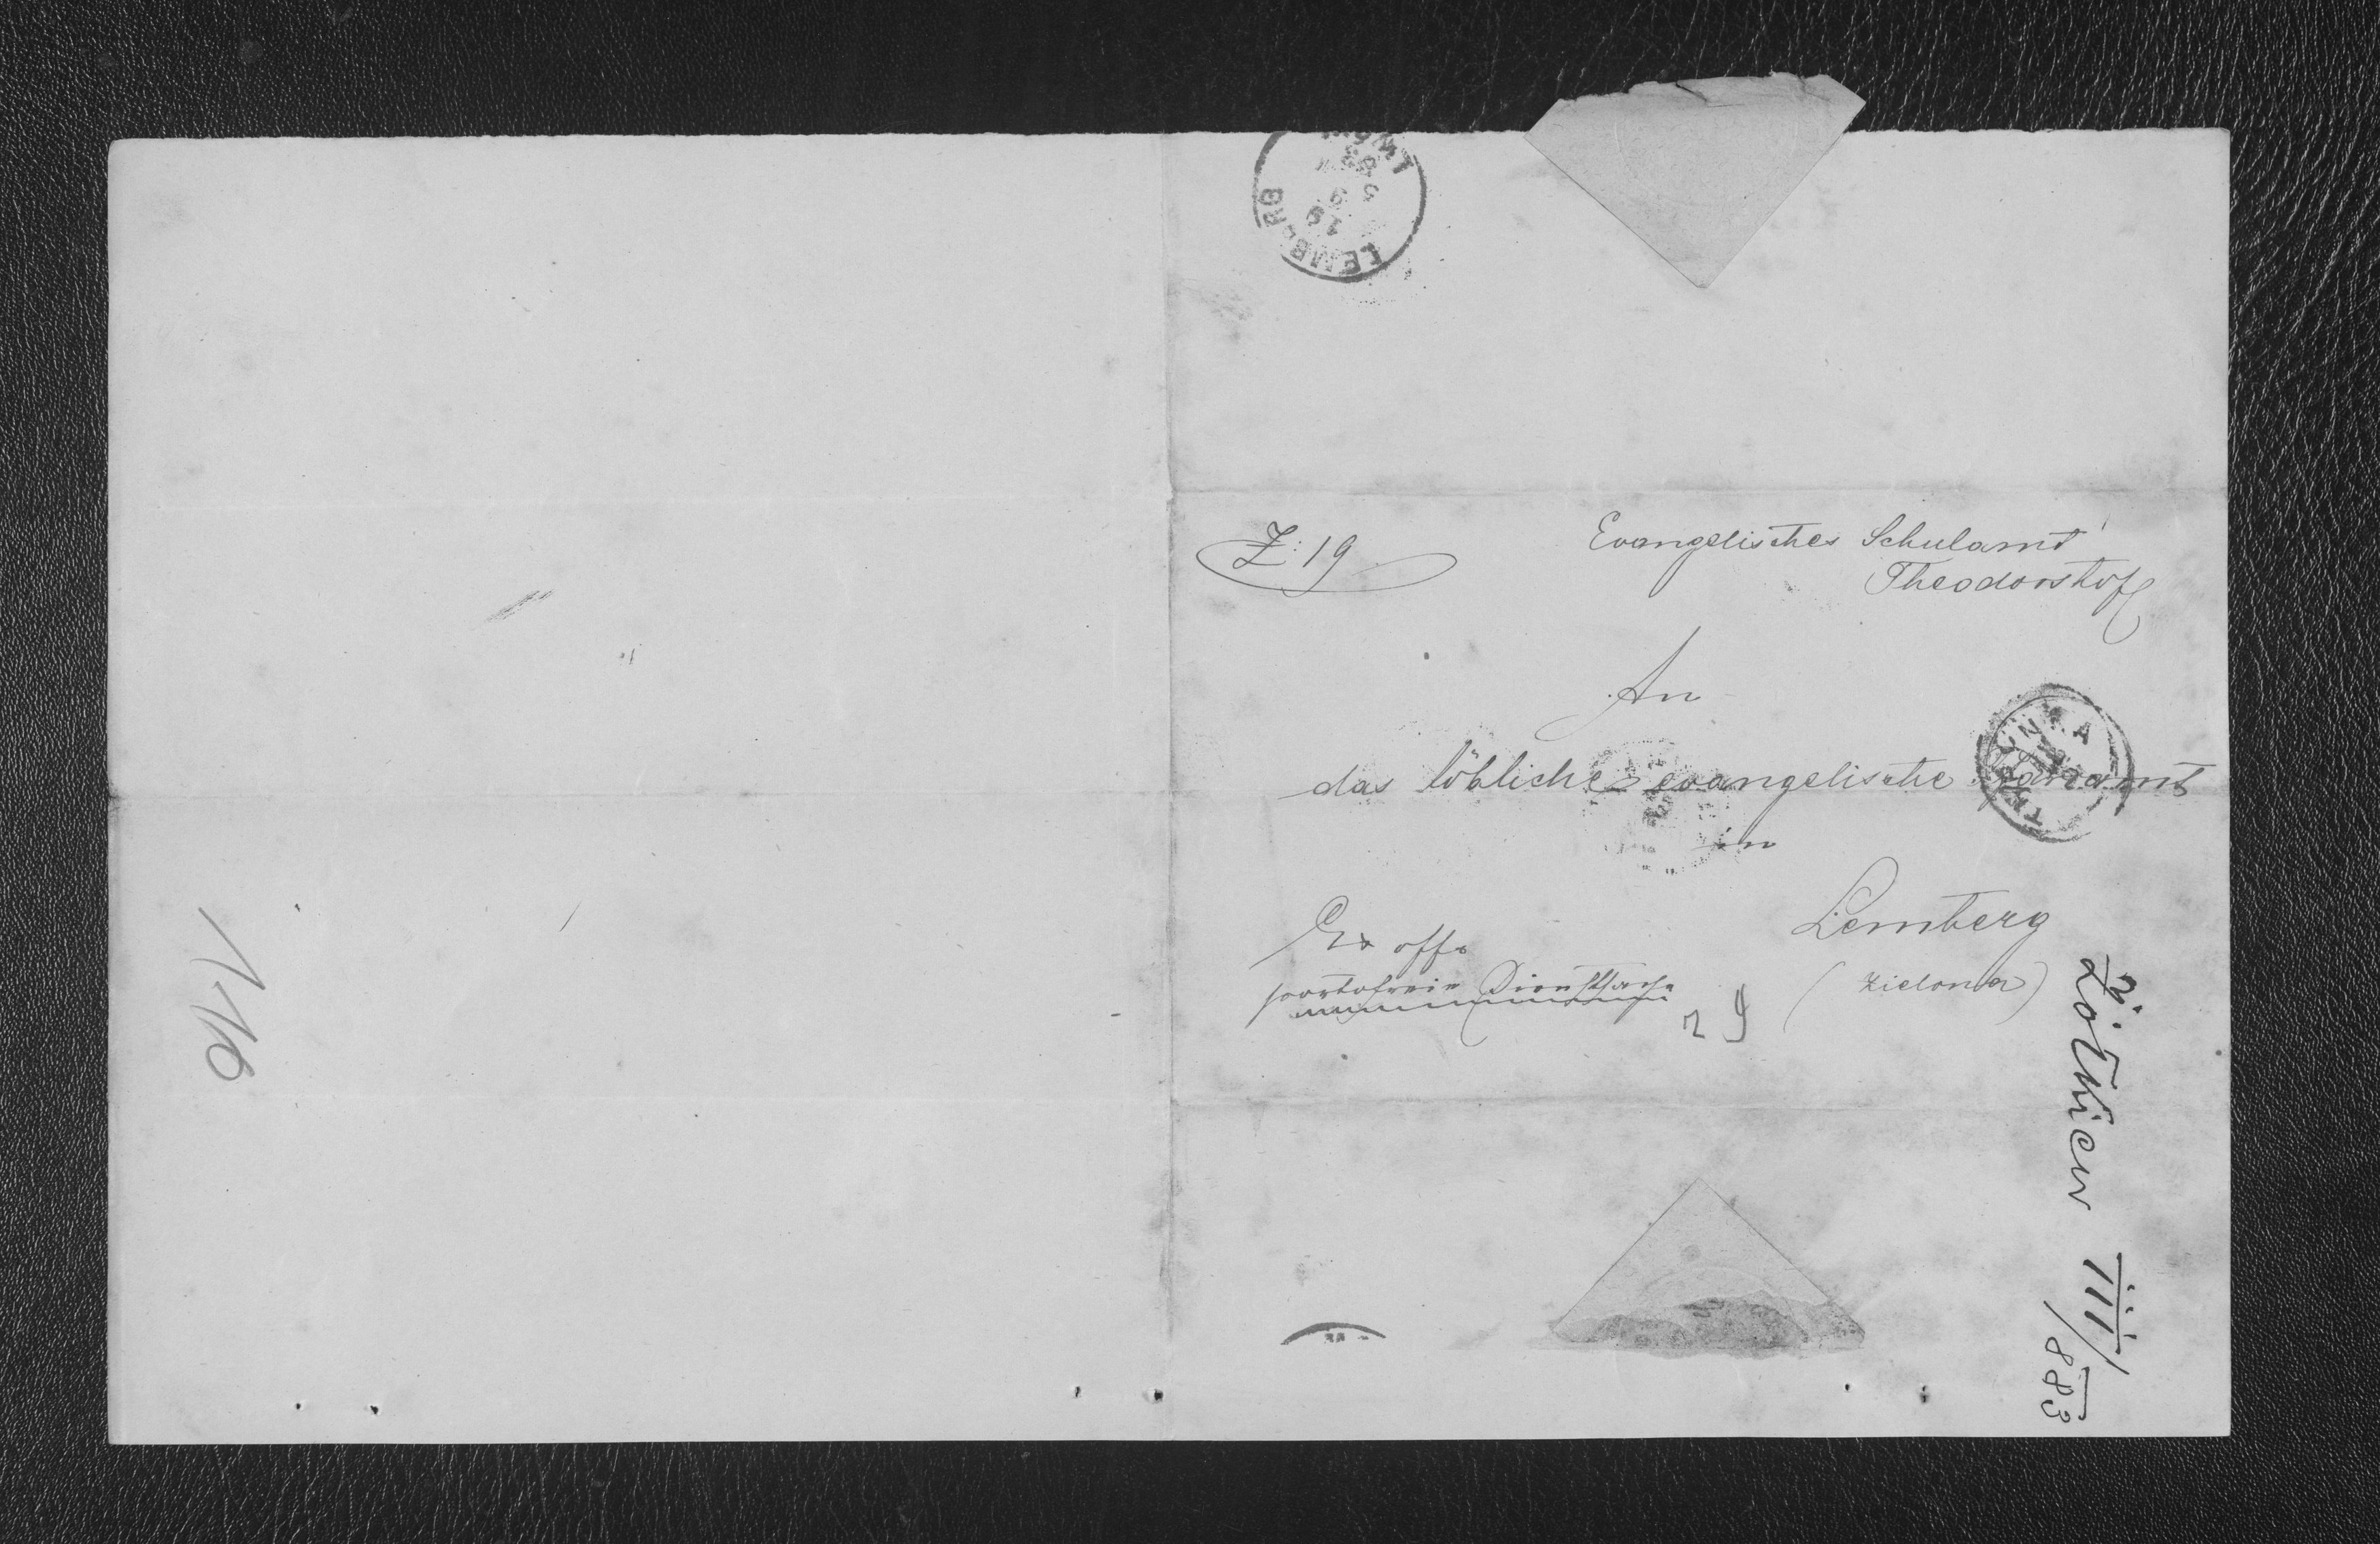 LEMBERG
19
Z: 19
Evangelisches Schulamt
Theodorshof
An
das löbliche evangelische Pfarramt
in
Lemberg
(Zielona)
Ex offo
portofreie Dienstsache
Żółkiew III/883
116